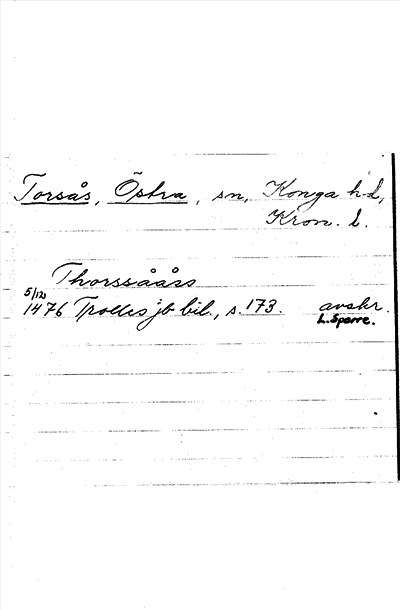 Torsås, Östra, sn, Konga hd,
Kron. l.
Thorssåårs
5/12
1476 Trolles jb bil., s. 173. avskr.
L. Sparre.